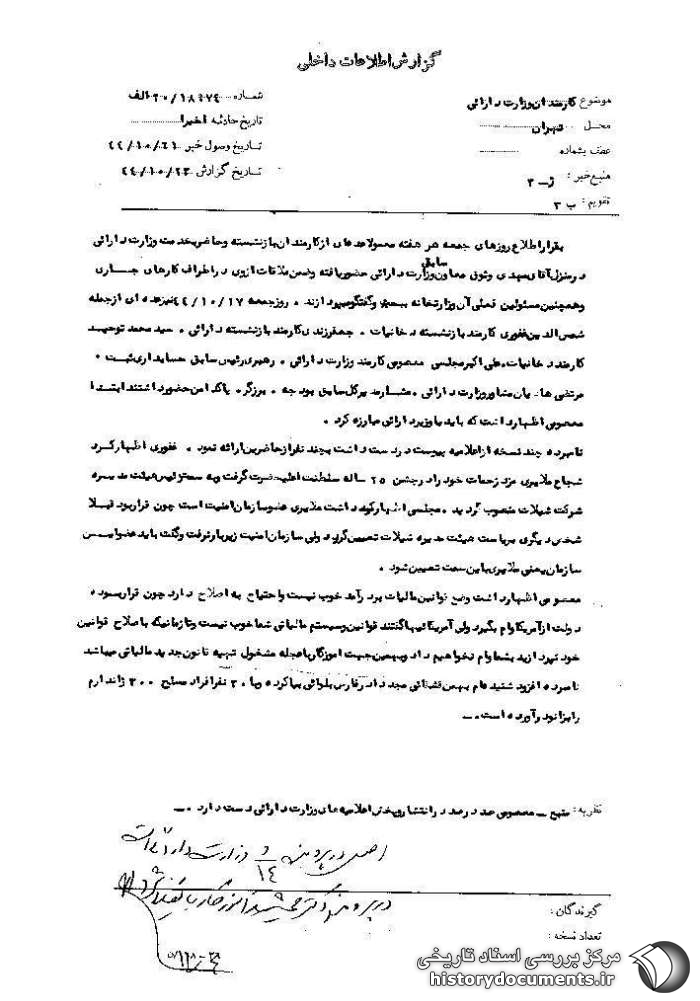 گزارش اطلاعات داخلی
موضوع کارمندان وزارت دارائی
شماره ۲۰/۱۸۶۷۴ الف
محل تهران
تاریخ حادثه اخیرا
عطف بشماره
تاریخ وصول خبر ۴۴/۱۰/۲۱
منبع خبر : ژـ ۳
تاریخ گزارش ۴۴/۱۰/۲۳
تقویم : ب ۳
بقرار اطلاع روزهای جمعه هر هفته معمولا عده‌ای از کارمندان بازنشسته و حاضر بخدمت وزارت دارائی
در منزل آقای مهدی وثوق معاون سابق وزارت دارائی حضور یافته و ضمن ملاقات از وی در اطراف کارهای جاری
و همچنین مسئولین فعلی آن وزارتخانه ببحث و گفتگو میپردازند . روز جمعه ۴۴/۱۰/۱۷ نیز عده ای از جمله
شمس الدین غفوری کارمند بازنشسته دخانیات . جعفر زندی کارمند بازنشسته دارائی . سید محمد توحید
کارمند دخانیات . علی اکبر مجلسی معصومی کارمند وزارت دارائی . رهبری رئیس سابق حسابداری ثبت .
مرتضی مشاور وزارت دارائی . مدیرکل سابق بودجه . برزگر . پاکدامن حضور داشتند ابتدا
معصومی اظهار داشت که باید با وزیر دارائی مبارزه کرد .
نامبرده چند نسخه از اعلامیه پیوست در دست داشت بچند نفر از حاضرین ارائه نمود . غفوری اظهار کرد
شجاع ملایری مزد زحمات خود را در جشن ۲۵ ساله سلطنت اعلیحضرت گرفت و به سمت رئیس هیئت مدیره
شرکت شیلات منصوب گردید . مجلسی اظهار داشت ملایری عضو سازمان امنیت است چون قرار بود قبلا
شخص دیگری بریاست هیئت مدیره شیلات تعیین گردد ولی سازمان امنیت زیر بار نرفت و گفت باید عضو ایـن
سازمان یعنی ملایری باین سمت تعیین شود .
معصومی اظهار داشت وضع قوانین مالیات بر درآمد خوب نیست و احتیاج به اصلاح دارد چون قرار بوده
دولت از آمریکا وام بگیرد ولی آمریکائیها گفتند قوانین و سیستم مالیاتی شما خوب نیست و تا زمانیکه باصلاح قوانین
خود نپردازید بشما وام نخواهیم داد و بهمین جهت آموزگار با عجله مشغول تهیه قانون جدید مالیاتی میباشد
نامبرده افزود شنیده‌ام بهمن قشقائی مجددا در فارس بلوائی بپا کرده و با ۳۰ نفر افراد مسلح ۳۰۰ ژاندارم
را بزانو درآورده است .ــ
نظریه : منبع ــ معصومی صددرصد در انتشار و پخش اعلامیه های وزارت دارائی دست دارد .ــ
اصل در پرونده وزارت دارائی است
گیرندگان :
تعداد نسخه :
مرکز بررسی اسناد تاریخی
historydocuments.ir